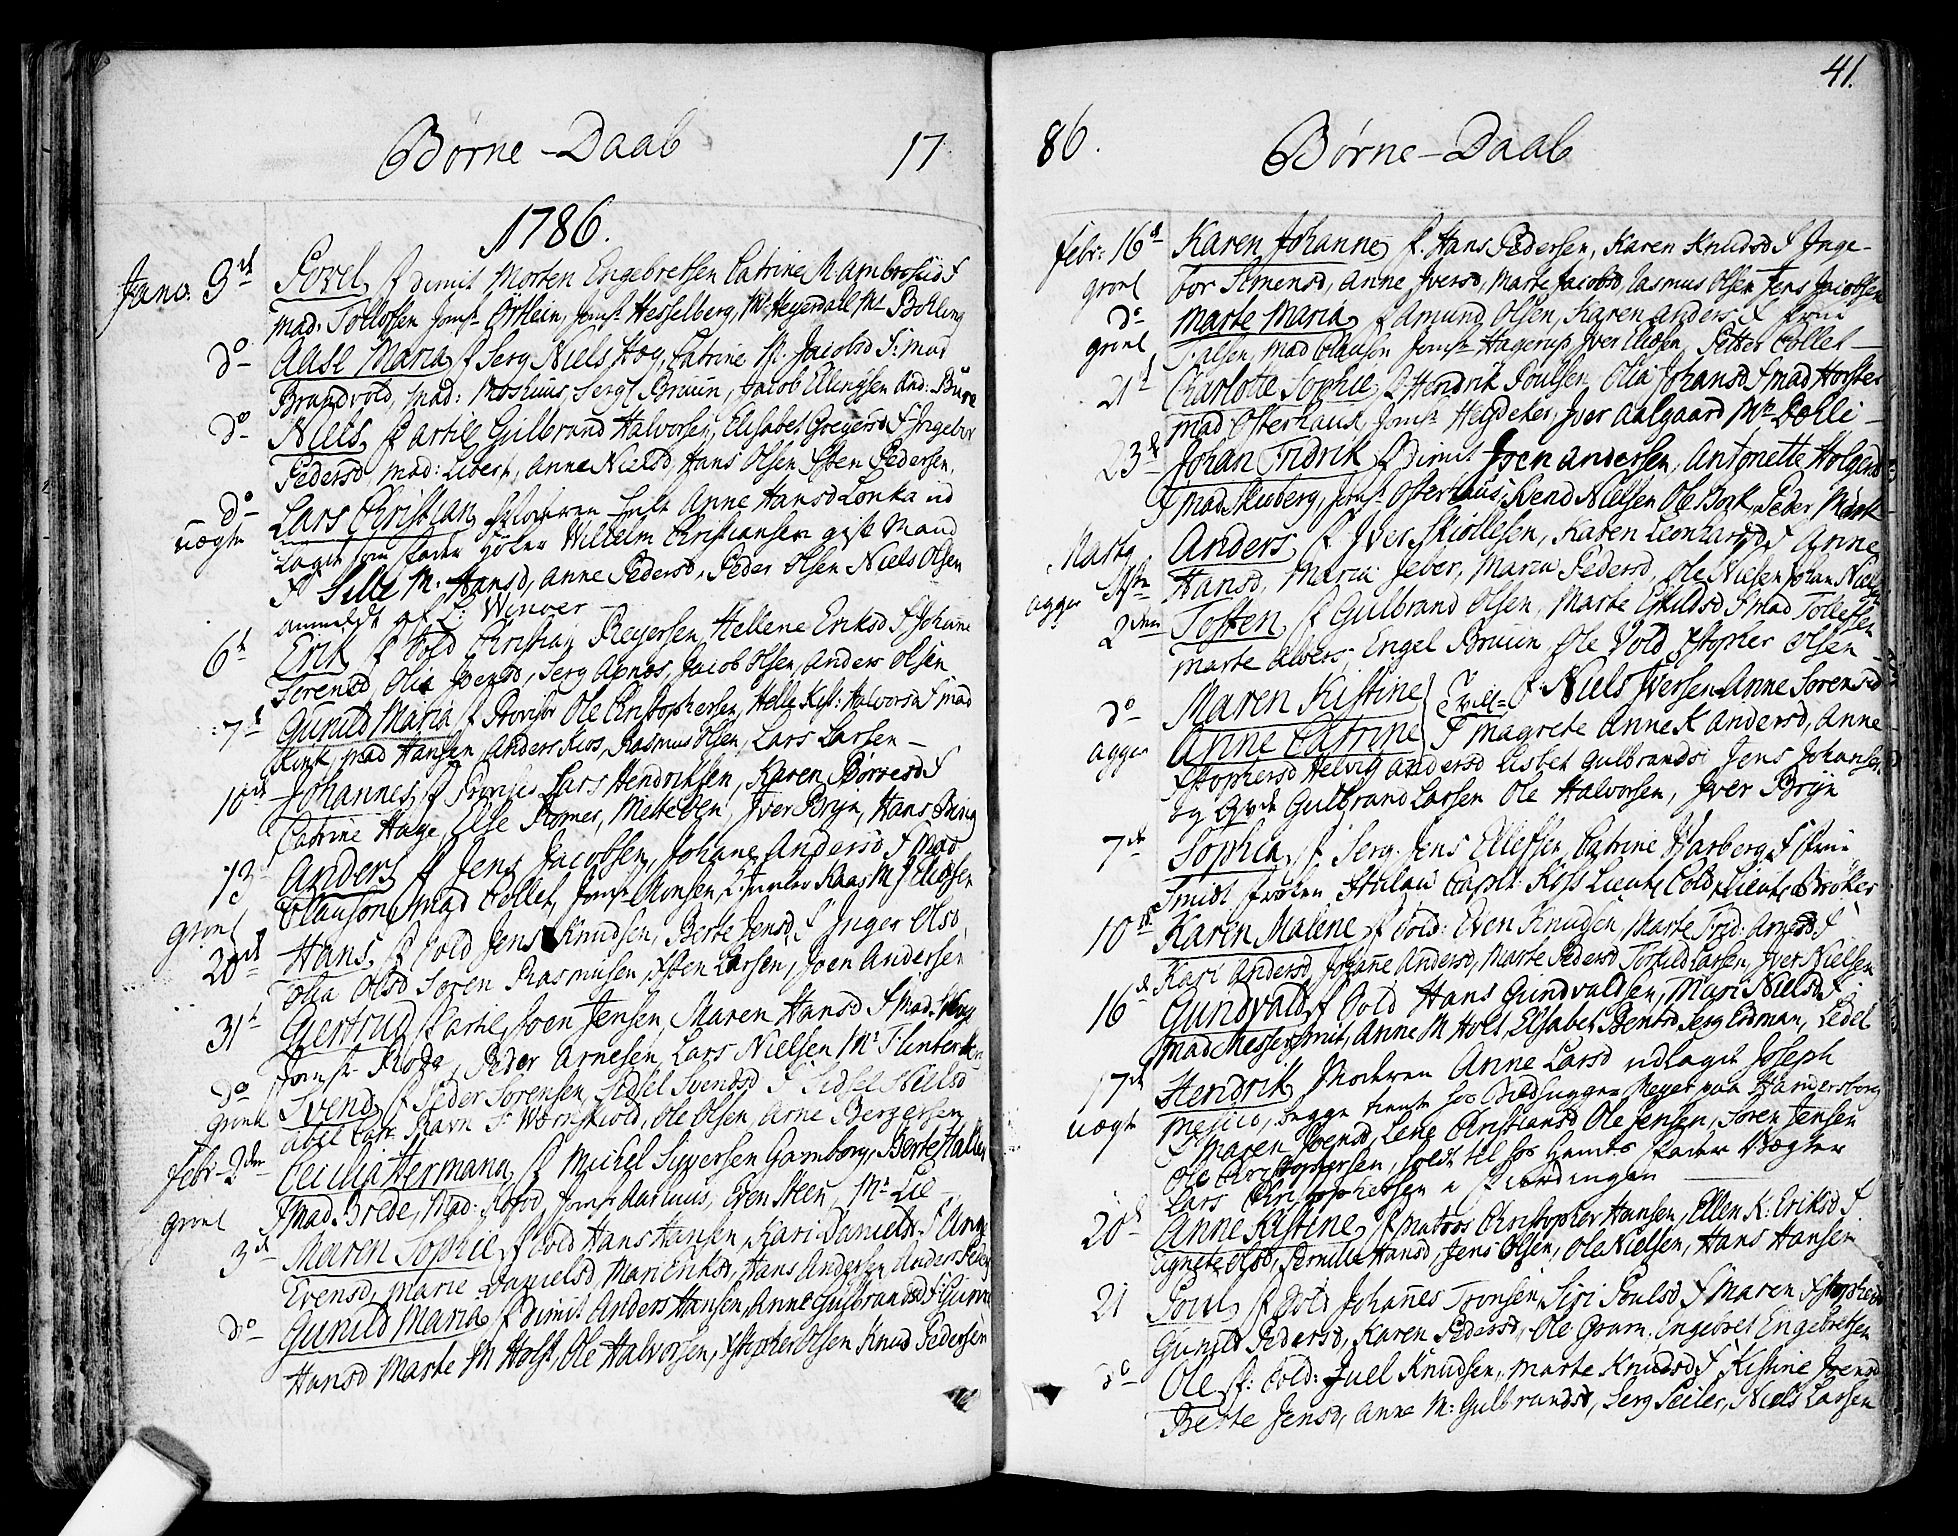 Børne-Daab 17
1786.
Janv: 3di Povel, f dimit Morten Engebretsen Catrine M. Ambrosiid F
Mad: Tollofsen Jomfr Ortlein, Jomfr Hesselberg, Mr Heyerdall Mr Bolling
do Aase Maria f Serg Niels Hog, Catrine M. Jacobsd F: Mad
Brandvold, Mad: Moshuus Serg Bruun, Jacob Ellingsen And:
do Niels, f Artil Gulbrand Halvorsen, Elisabet Gregersd F Ingebor
Pedersd, Mad: Libert, Anne Nielsd, Hans Olsen Steen Pedersen,
do Lars Christian, Moderen Anne Hansd Lonka ud
uægte laget som Fader Wilhelm Christiansen gift Mand
F Sille M. Hansd, Anne Pedersd, Peder Olsen Niels Olsen
anmeldt af C: Winver
6t Erik f Sold Christian Reyersen, Hellene Eriksd F Johanne
Sorensd, Olia Joensd, Serg Agnes, Jacob Olsen, Anders Olsen
7d Gunild Maria f Provisor Ole Christophersen, Helle Kist: Halvorsd F Mad
Rink, Mad Hansen, Anders Kios, Rasmus Olsen, Lars Larsen
10de Johannes, f Lars Hendriksen, Karen Børresd F
Catrine Hage, Else Romer, Mette Een, Iver Bryn, Hans Bang
13 Anders f Jens Jacobsen, Johane Andersd F Mad
Clauson Mad Collet, Jomfr Monsen, Kaas M J Eliesen
grønl
20de Hans, f Sold Jens Knudsen, Berte Jensd, F Inger Olsd,
Olia Olsd Soren Rasmusen, Osten Larsen, Joen Andersen
31t Giertrud f Artil Joen Jensen, Maren Hansd F Mad
Jomfr Rode, Peder Arnesen, Lars Nielsen Mr Flinterkien
do Svend, f Peder Sorensen, Sidsel Svendsd F Sidsel Nielsd
grønl Abel Catr Ravn F: Wornskiold, Ole Olsen, Arne Bergersen
Febr 2den Cecilia Hermana, f Michel Sivversen Gamborg, Berte Halle
grønl F Mad Brede, Mad: Kofod, Jomfr Aarhuus, Even Steen, Mr Lie
3di Maren Sophie, f Sold Hans Hansen, Kari Danielsd F Anne
Evensd, Marie Danielsd, Mari Eriksd, Hans Andersen Anders Peders
do Gunild Maria f Dimit Anders Hansen, Anne Gulbransd F Gunne
Hansd Marte M Holst, Ole Halvorsen, Xstopher Olsen Knud Pedersen
41.
86. Børne-Daab
Febr: 16d Karen Johanne, f. Hans Pedersen, Karen Knudsd F Inge-
grønl bor Simensd, Anne Iversd, Marte Jacobsd, Rasmus Olsen Jens Jacobsen
do Marte Maria, f Amund Olsen, Karen Anders: F
grønl Nilsen, Mad Clauson Jomfr Hagerup Iver Eliesen, Petter Collet
21d Charlotte Sophie, f Hendrik Poulsen, Olia Johansd F Mad Horster
Mad Osterhaus, Jomfr Heydeker: Iver Aalgaard Mr Dolli
23d Johan Fridrik f Dimit Joen Andersen, Antonette Holgersd
F Mad Skioberg, Jomfr Osterhaus, Svend Nielsen Ole Bork, Peder Mark
Marty 1ste Anders f Iver Skiøllesen, Karen Leonhardsd F Anne
agger Hansd, Maria Jeber, Maria Pedersd, Ole Nilsen Johan Niels
2den Tosten f Gulbrand Olsen, Marte Eskildsd F Mad Tollefsen
Marte Alvers, Engel Bruun, Ole Vold Xstopher Olsen
do Maren Kistine } Tvill= f Niels Iversen Anne Sorensd
agger Anne Catrine } F Magrete Anne K Andersd, Anne
Xstophersd Helvig Andersd Lisbet Gulbrandsd Jens Johansen
og Gulbrand Larsen Ole Halvorsen, Iver Bryn
7de Sophia, f. Serg. Jens Ellefsen, Catrine Warberg F
Smidt Frøken Stillau Capit Koss Lieut Cold, Lieut Brøkes
10de Karen Malene f Sold: Even Knudsen, Marte Frid: Arnesd F
Kari Andersd, Johanne Andersd, Marte Pedersd Torkild Larsen, Iver Nielsen
16d Gundvald f Sold Hans Gundvaldsen, Mari Nielsd F:
Mad Messersmit, Anne M Holt, Elsabet Bentsd, Serg Erdman, Ledel
17de Hendrik, Moderen Anne Larsd udlagt Joseph
uægt Mesico, begge tieente hos Meyer paa
F Maren Svensd, Lene Christiansd Ole Jensen, Soren Jensen
Ole Christophersen, født til hos Faster Vægter
Lars Christophersen i Fierdingen
20d Anne Kistine, f Matros Christopher Hansen, Ellen K: Eriksd F
Agnete Olsd, Pernille Hansd, Jens Olsen, Ole Nielsen, Hans Hansen
21 Poul, f Sold Johannes Tronsen, Siri Poulsd F Maren Xstophersd
Gunild Pedersd, Karen Pedersd, Ole Gram, Engebret Engebretsen
do Ole, f: Sold: Juel Knudsen, Marte Knudsd F Kistine Joensd
Berte Jensd, Anne M: Gulbrandsd, Serg Seiler, Niels Larsen